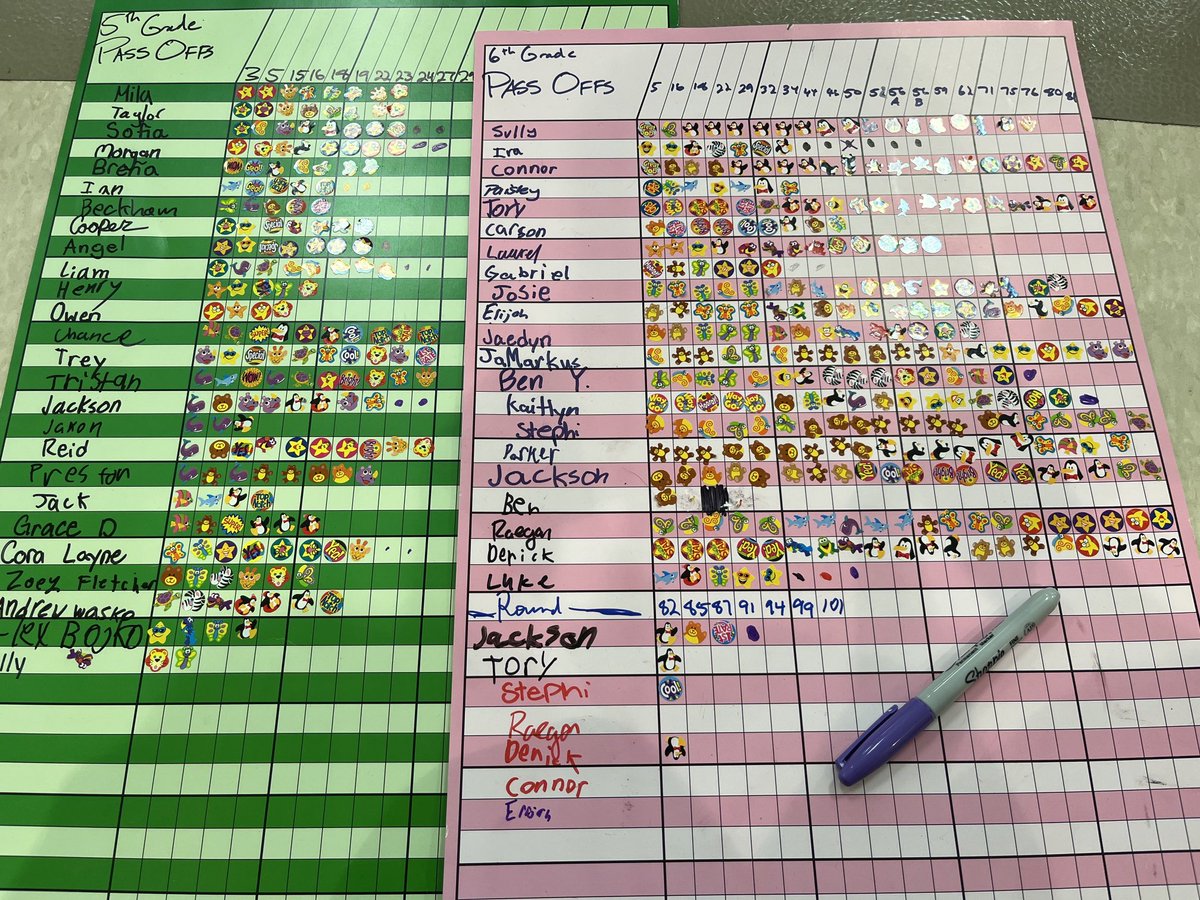 5th Grade
PASS OFFS
3 5 15 16 18 19 22 23 24 27 29
Mila
Taylor
Sofia
Morgan
Brena
Ian
Beckham
Cooper
Angel
Liam
Henry
Owen
Chance
Trey
Tristan
Jackson
Jaxon
Reid
Preston
Jack
Grace D
Cora Layne
Zoey Fletcher
Andrew wasko
lex Bojko
lly
6th Grade
PASS OFFS
5 16 18 22 29 32 34 44 46 50 52 56A 56B 59 62 71 75 76 80
Sully
Ira
Connor
Paisley
Tory
Carson
Laurel
Gabriel
Josie
Elijah
Jaedyn
JaMarkus
Ben Y.
Kaitlyn
Stephi
Parker
Jackson
Ben
Raegan
Derick
Luke
Round 82 85 87 91 94 99 101
Jackson
TORY
Stephi
Raegan
Derick
Connor
Sharpie